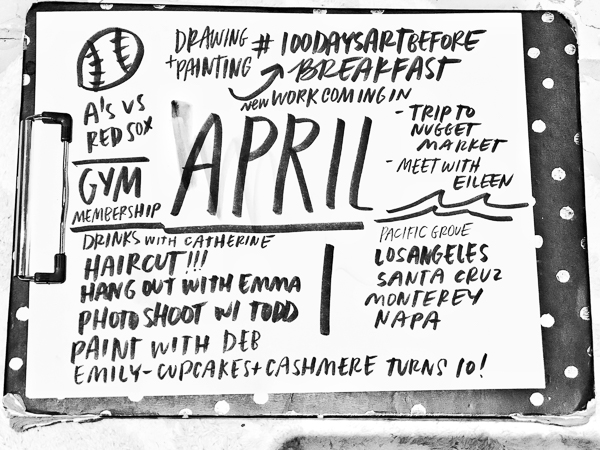 DRAWING
+PAINTING
# 100DAYSARTBEFORE
BREAKFAST
NEW WORK COMING IN
A's VS
RED SOX
GYM
MEMBERSHIP
APRIL
- TRIP TO
NUGGET
MARKET
- MEET WITH
EILEEN
DRINKS WITH CATHERINE
HAIRCUT!!!
HANG OUT WITH EMMA
PHOTO SHOOT W/ TODD
PAINT WITH DEB
EMILY-CUPCAKES+CASHMERE TURNS 10!
PACIFIC GROVE
LOS ANGELES
SANTA CRUZ
MONTEREY
NAPA